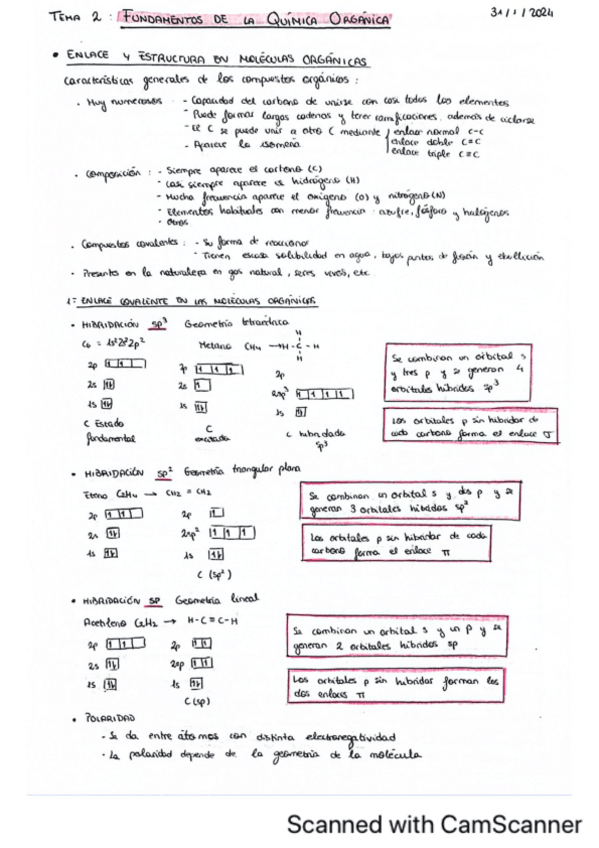 TEMA 2 : FUNDAMENTOS DE LA QUÍMICA ORGÁNICA
31/1/2024
• ENLACE Y ESTRUCTURA EN MOLÉCULAS ORGÁNICAS
Características generales de los compuestos orgánicos :
• Muy numerosos - Capacidad del carbono de unirse con casi todos los elementos
- Puede formar largas cadenas y tener ramificaciones, además de ciclarse
- El C se puede unir a otro C mediante enlace normal C-C
enlace doble C=C
enlace triple C≡C
- Aparece la isomería
• Composición : - Siempre aparece el carbono (C)
- Casi siempre aparece el hidrógeno (H)
- Mucha frecuencia aparece el oxígeno (O) y nitrógeno (N)
- Elementos habituales con menor frecuencia : azufre, fósforo y halógenos
- Otros
• Compuestos covalentes : - Su forma de reaccionar
- Tienen escasa solubilidad en agua, bajos puntos de fusión y ebullición
• Presentes en la naturaleza en gas natural, seres vivos, etc.
1= ENLACE COVALENTE EN LAS MOLÉCULAS ORGÁNICAS
• HIBRIDACIÓN sp³ Geometría tetraédrica
C₆ = 1s²2s²2p² Metano CH₄ → H - C - H
H
H
2p 2p 2p
2s 2s 2sp³
1s 1s 1s
C Estado fundamental
C excitado
C hibridado sp³
Se combinan un orbital s
y tres p y se generan 4
orbitales híbridos sp³
Los orbitales p sin hibridar de
cada carbono forma el enlace
• HIBRIDACIÓN sp² Geometría triangular plana
Eteno C₂H₄ → CH₂ = CH₂
2p 2p
2s 2sp²
1s 1s
C (sp²)
Se combinan un orbital s y dos p y se
generan 3 orbitales híbridos sp²
Los orbitales p sin hibridar de cada
carbono forma el enlace π
• HIBRIDACIÓN SP Geometría lineal
Acetileno C₂H₂ → H-C≡C-H
2p 2p
2s 2sp
1s 1s
C (sp)
Se combinan un orbital s y un p y se
generan 2 orbitales híbridos sp
Los orbitales p sin hibridar forman los
dos enlaces π
• POLARIDAD
- Se da entre átomos con distinta electronegatividad
- La polaridad depende de la geometría de la molécula
Scanned with CamScanner